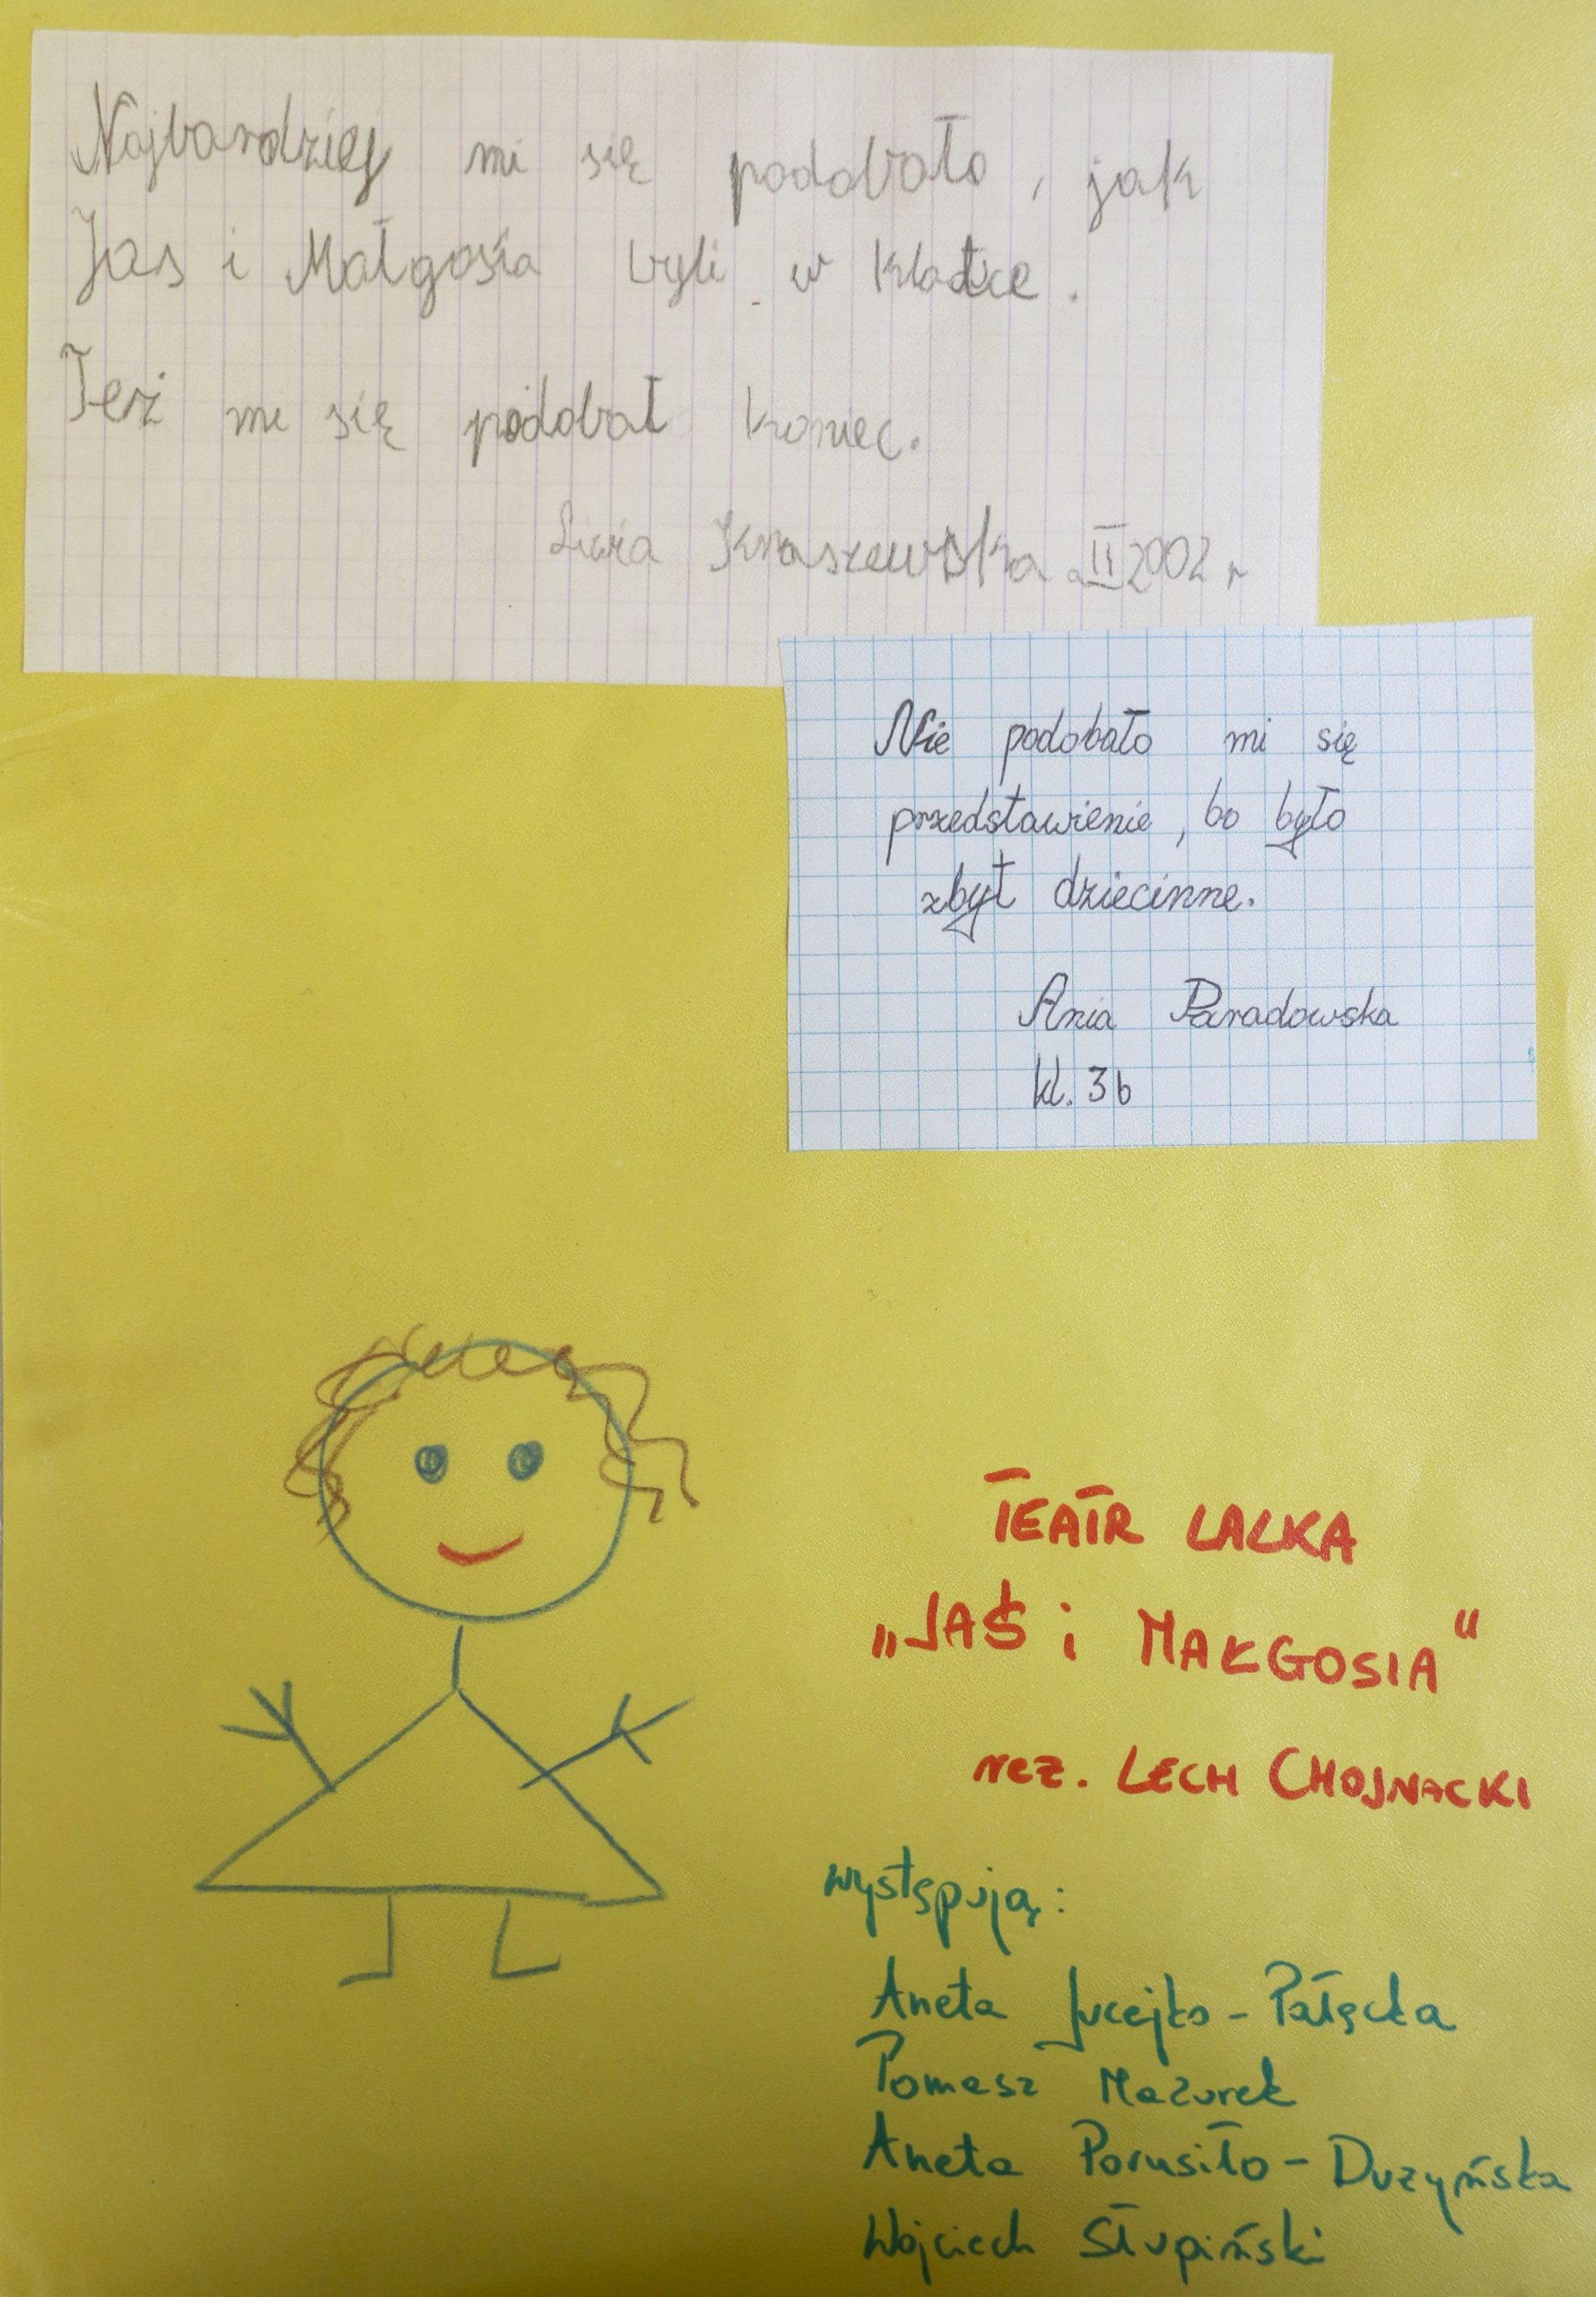 Najbardziej mi się podobało, jak
Jas i Małgosia byli w klatce.
Też mi się podobał koniec.
Liwia Kraszewska II 2002 r
Nie podobało mi się
przedstawienie, bo było
zbyt dziecinne.
Ania Paradowska
kl. 3b
TEATR LALKA
„JAŚ i MAŁGOSIA"
reż. LECH CHOJNACKI
występują:
Aneta Jucejko-Pałęcka
Tomasz Mazurek
Aneta Porusiło-Dużyńska
Wojciech Słupiński